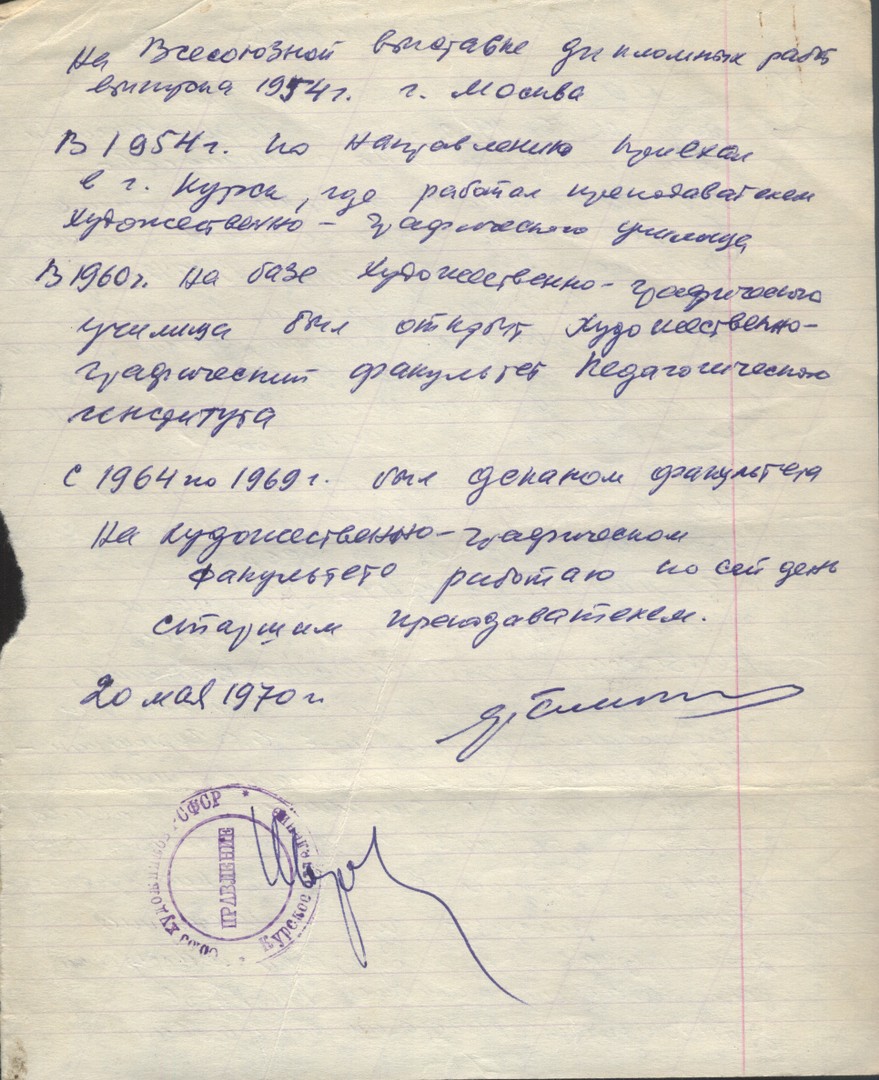 на Всесоюзной выставке дипломных работ
выпуска 1954г. г. Москва
В 1954г. по направлению приехал
в г. Курск, где работал преподавателем
Художественно-графического училища
В 1960г. на базе Художественно-графического
училища был открыт Художественно-
графический факультет Педагогического
института
С 1964 по 1969г. был деканом факультета
На художественно-графическом
факультете работаю по сей день
старшим преподавателем.
20 мая 1970г.
Союз художников РСФСР * Курское отделение
ПРАВЛЕНИЕ